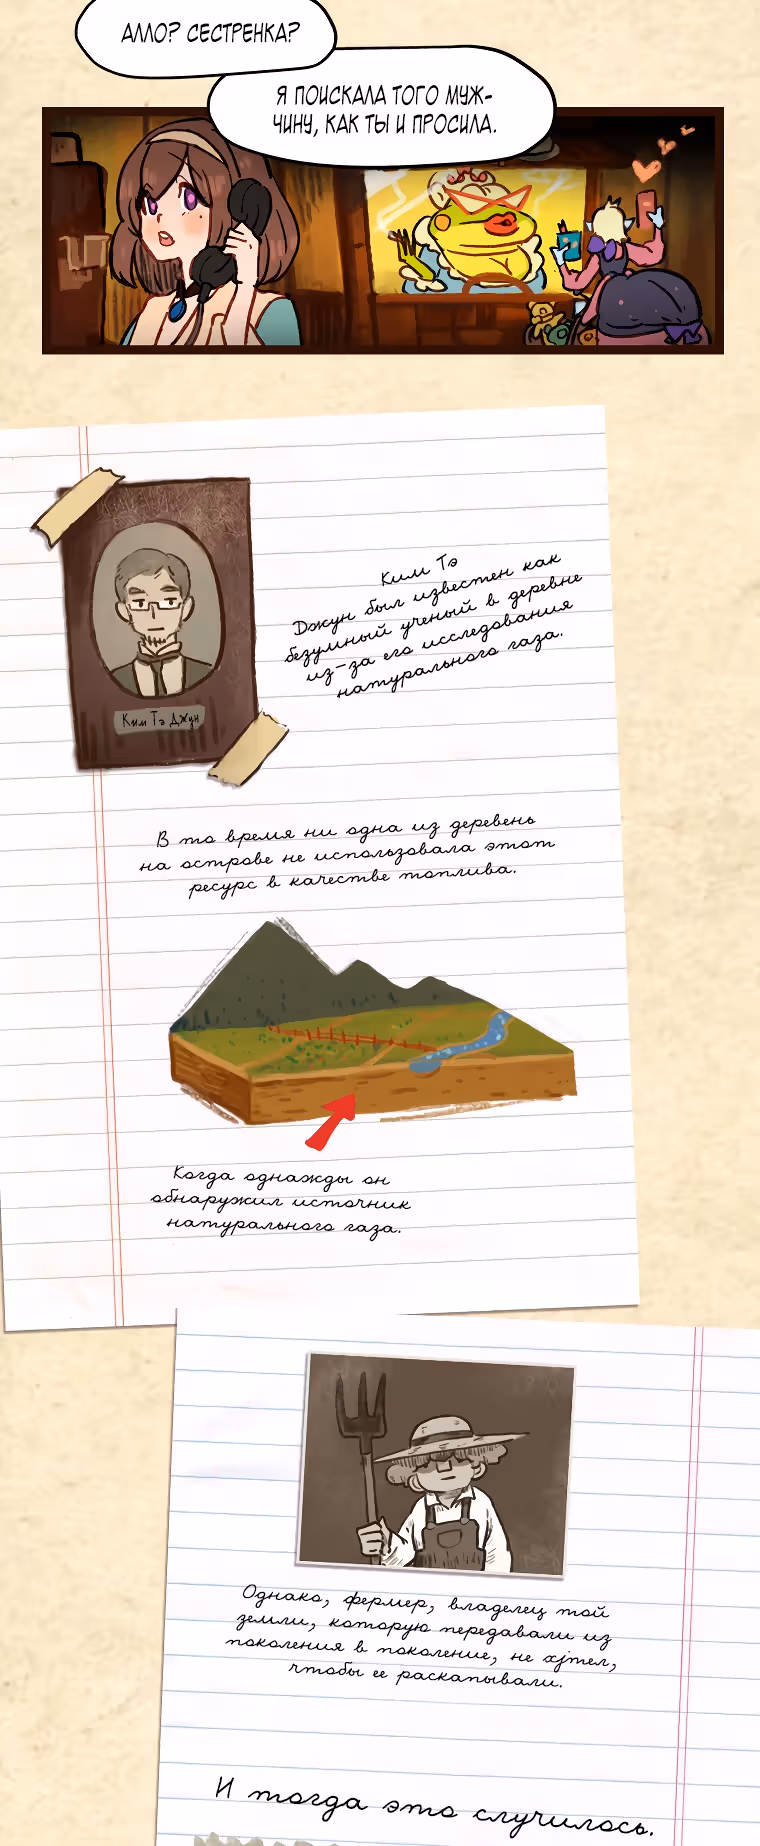 АЛЛО? СЕСТРЕНКА?
Я ПОИСКАЛА ТОГО МУЖ-
ЧИНУ, КАК ТЫ И ПРОСИЛА.
Ким Тэ
Джун был известен как
безумный ученый в деревне
из-за его исследования
натурального газа.
Ким Тэ Джун
В то время ни одна из деревень
на острове не использовала этот
ресурс в качестве топлива.
Когда однажды он
обнаружил источник
натурального газа.
Однако, фермер, владелец той
земли, которую передавали из
поколения в поколение, не хjтел,
чтобы ее раскапывали.
И тогда это случилось.